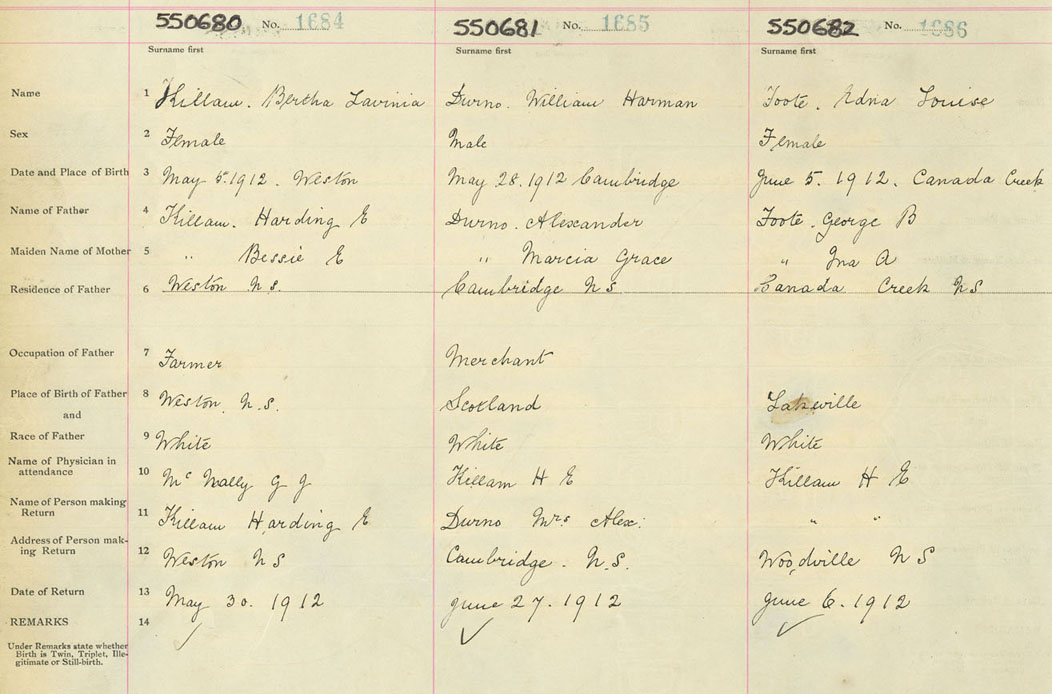 550680 No. 1684 550681 No. 1685 550682 No. 1686
Surname first Surname first Surname first
Name 1 Killam. Bertha Lavinia Durno. William Harman Foote. Edna Louise
Sex 2 Female Male Female
Date and Place of Birth 3 May 5. 1912. Weston May 28. 1912 Cambridge June 5. 1912. Canada Creek
Name of Father 4 Killam. Harding E Durno. Alexander Foote. George B
Maiden Name of Mother 5 " Bessie E " Marcia Grace " Ina A
Residence of Father 6 Weston N.S. Cambridge N S Canada Creek N S
Occupation of Father 7 Farmer Merchant
Place of Birth of Father 8 Weston, N.S. Scotland Lakeville
and
Race of Father 9 White White White
Name of Physician in
attendance 10 Mc Nally G J Killam H E Killam H E
Name of Person making
Return 11 Killam Harding E Durno Mrs Alex. " "
Address of Person mak-
ing Return 12 Weston N S Cambridge. N.S. Woodville N S
Date of Return 13 May 30. 1912 June 27. 1912 June 6. 1912
REMARKS 14
Under Remarks state whether
Birth is Twin, Triplet, Ille-
gitimate or Still-birth.